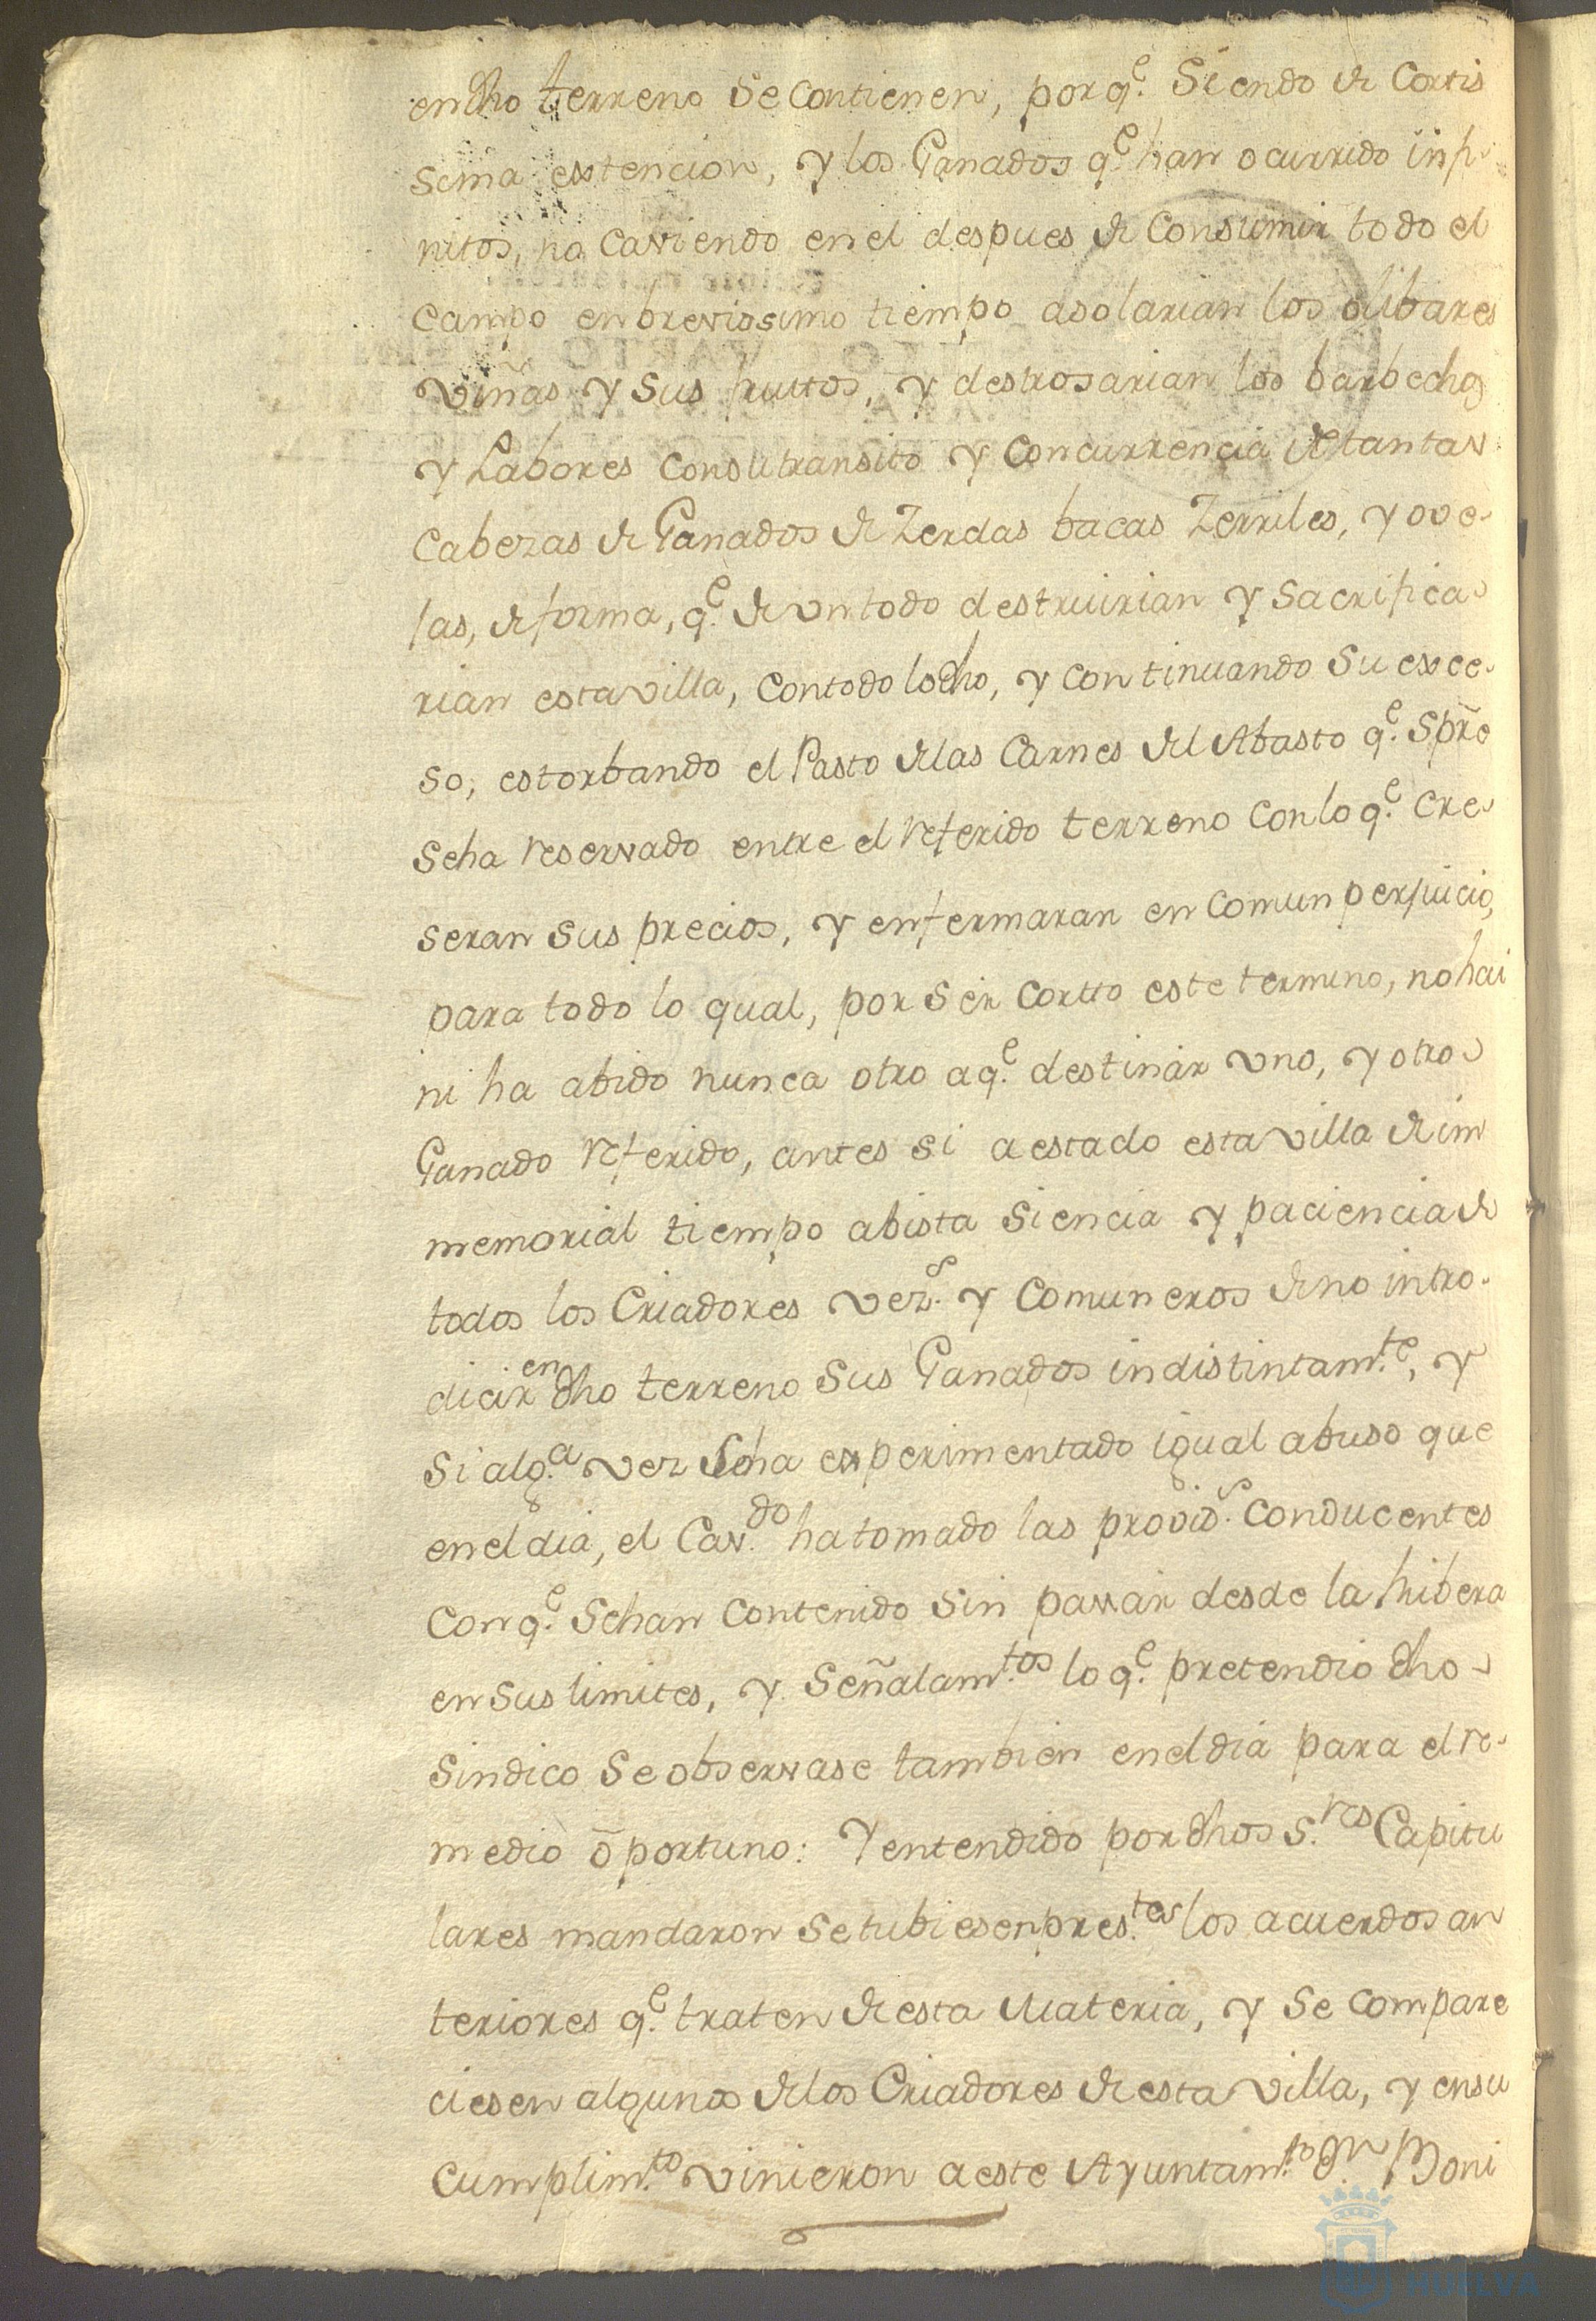 en dho terreno se contienen, porq.e siendo de cortis
sima extencion, y los Ganados q.e han ocurrido infi
nitos, no caviendo en el despues de consumir todo el
campo en brevissimo tiempo asolarian los olibares
viñas y sus fruttos, y destrosarian los barbechos
y Labores con su transito y concurrencia de tantas
cabezas de Ganados de Zerdas bacas Zerriles, y ove-
jas, de forma, q.e de un todo destruirian y sacrifica-
rian esta villa, con todo lo dho, y continuando su exce-
so, estorbando el Pasto de las Carnes del Abasto q.e spre
se ha reservado entre el referido terreno con lo q.e cre-
seran sus precios, y enfermaran en comun perjuicio,
para todo lo qual, por ser cortto este termino, no hai
ni ha abido nunca otro a q.e destinar uno, y otro
Ganado referido, antes si a estado esta villa de im
memorial tiempo a bista siencia y paciencia de
todos los Criadores vez.s y comuneros de no intro-
dicir en dho terreno sus Ganados indistintam.te, y
si alg.a vez se ha experimentado igual abuso que
en el dia, el Cav.do ha tomado las provid.s conducentes
con q.e se han contenido sin passar desde la hibera
en sus limites, y señalam.tos lo q.e pretendio dho
sindico se observase tambien en el dia para el re-
medio oportuno: Y entendido por dhos S.res Capitu
lares mandaron se tubiesen pres.tes los acuerdos an
teriores q.e traten de esta Materia, y se compare
ciesen algunos de los Criadores de esta villa, y en su
cumplim.to vinieron a este Ayuntam.to D.n Boni
HUELVA